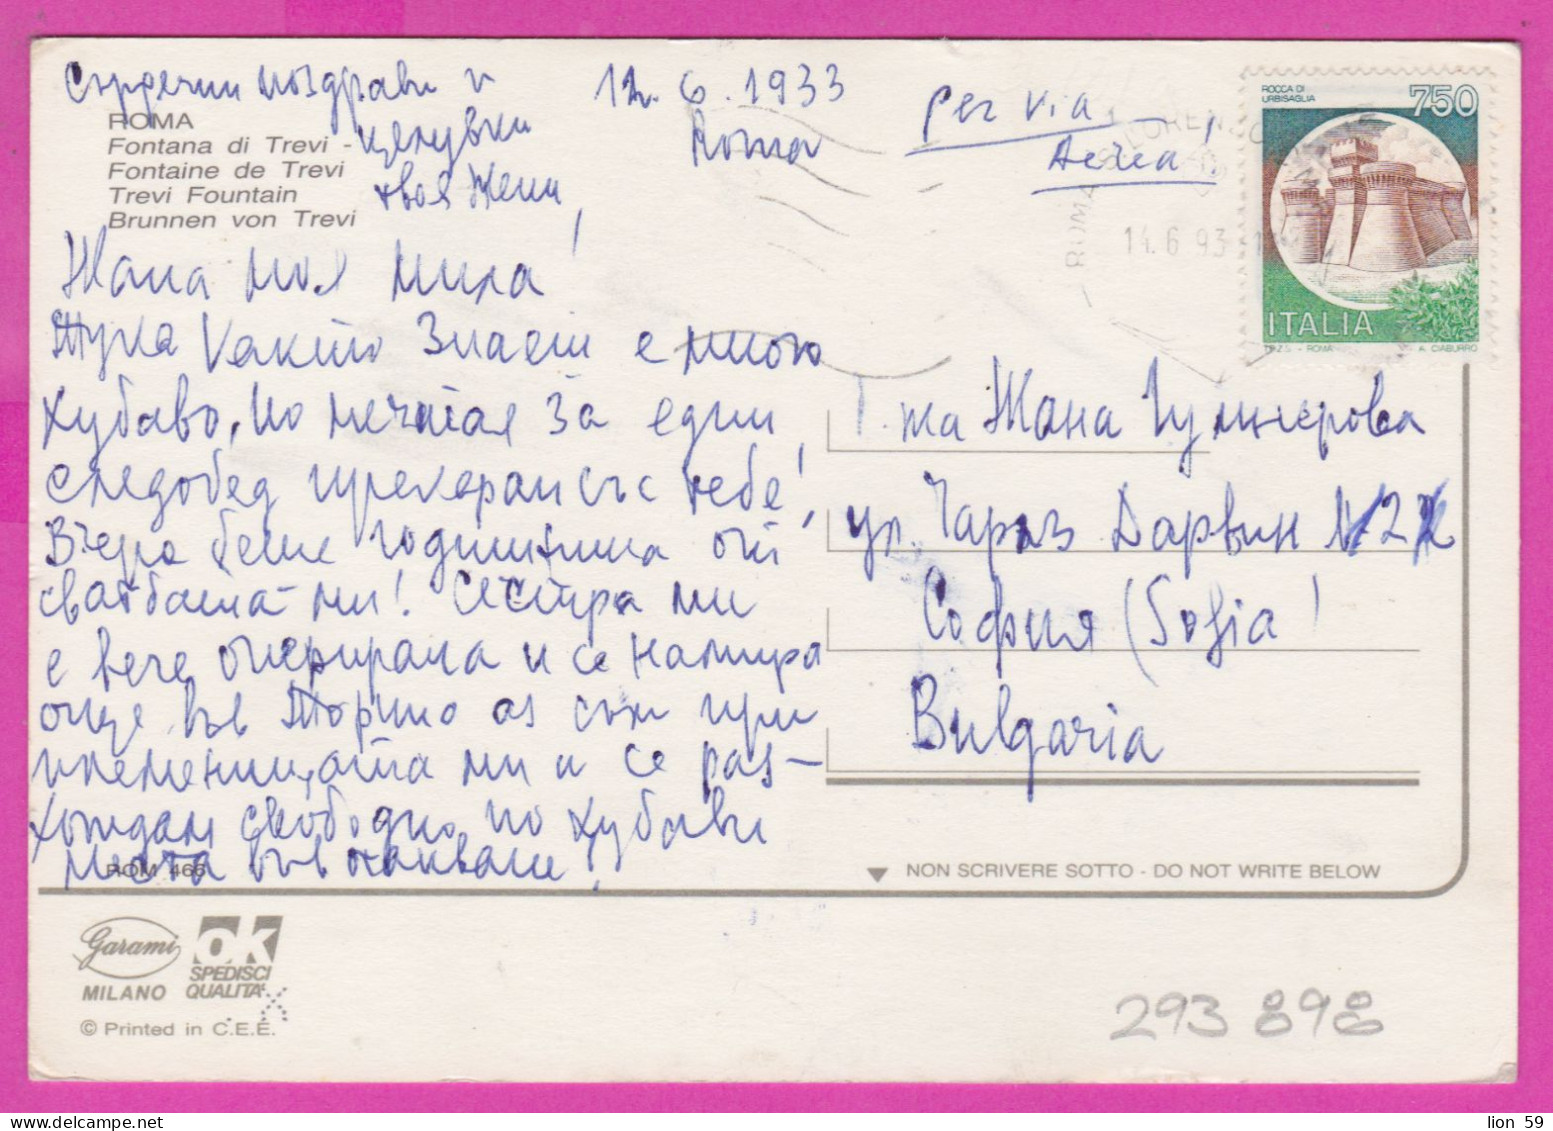 Сърдечни поздрави и
целувки
твоя Жени
12.6.1933
Roma
per via
Aerea!
ROMA
Fontana di Trevi -
Fontaine de Trevi
Trevi Fountain
Brunnen von Trevi
ROCCA DI
URBISAGLIA
750
ITALIA
I.P.Z.S. - ROMA
A. CIABURRO
14.6.93
Жана моя мила!
Тука както знаеш е много
хубаво, но мечтая за един
следобед прекаран със тебе!
Вчера беше годишнина от
сватбата ми! Сестра ми
е вече оперирана и се намира
още във Торино аз съм при
племеницата ми и се раз-
хождам свободно по хубави
места във очакване!
Г. жа Жана
ул. Чарлз Дарвин 2
София (Sofia)
Bulgaria
ROM 466
NON SCRIVERE SOTTO - DO NOT WRITE BELOW
Garami
MILANO
OK
SPEDISCI
QUALITÀ
© Printed in C.E.E.
293 898
lion 59